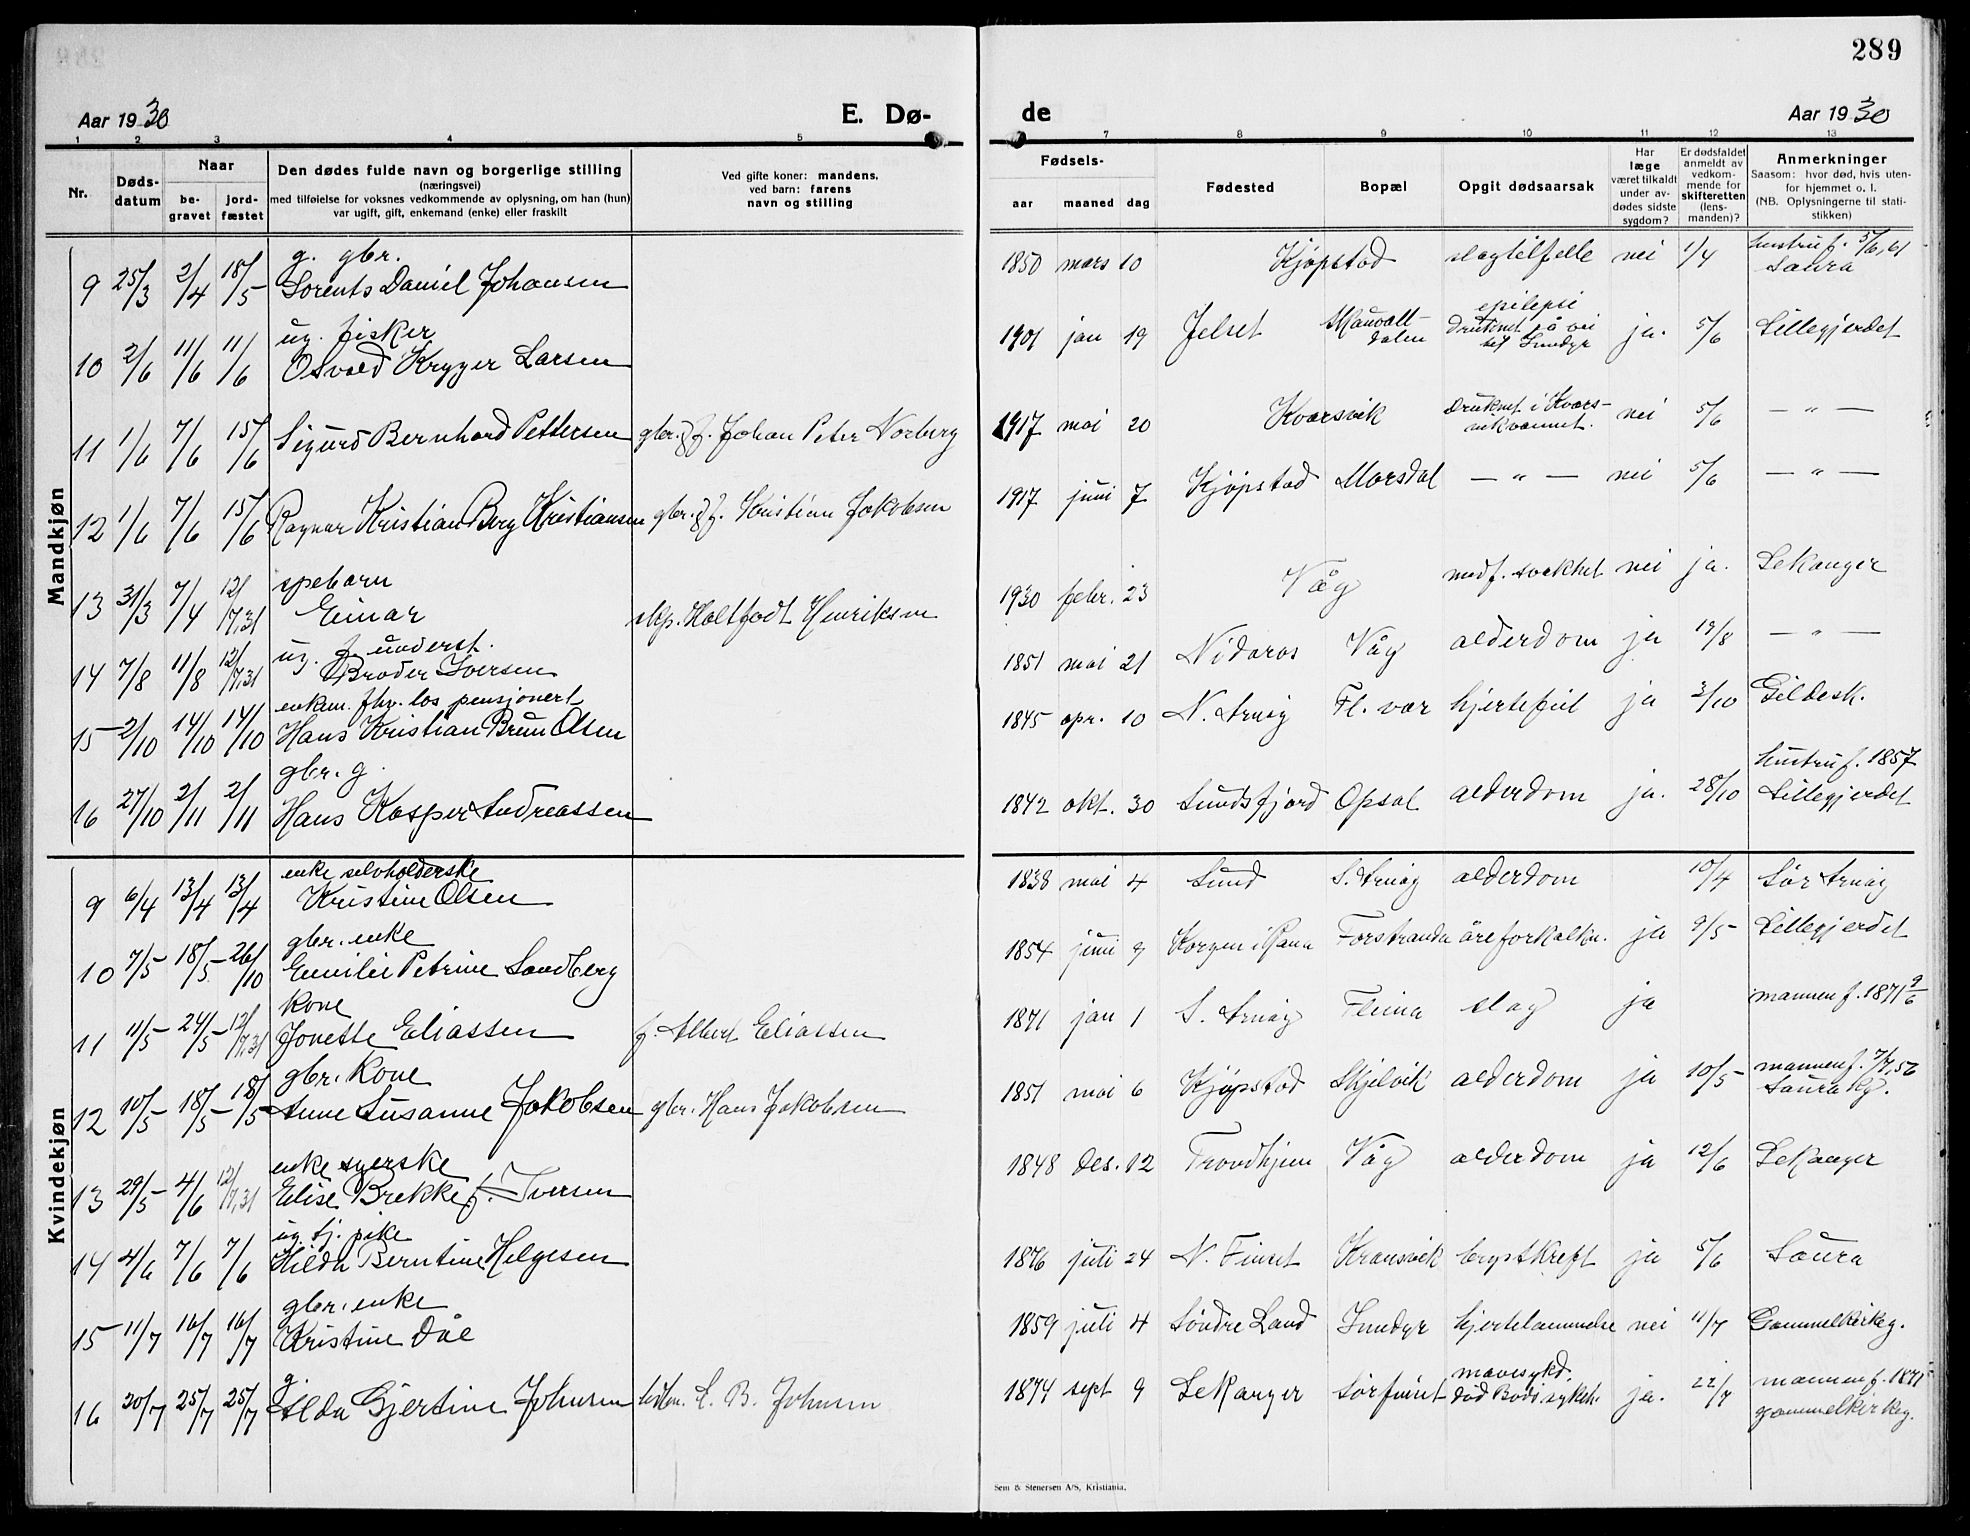 289
Aar 1930 E. Dø-
de Aar 1930
1 2 3 4 5
7 8 9 10 11 12 13
Nr. Dødsdatum Naar begravet jordfæstet
Den dødes fulde navn og borgerlige stilling
(næringsvei)
med tilføielse for voksnes vedkommende av oplysning, om han (hun)
var ugift, gift, enkemand (enke) eller fraskilt
Ved gifte koner: mandens,
ved barn: farens
navn og stilling
Fødsels- aar maaned dag
Fødested Bopæl Opgit dødsaarsak
Har læge været tilkaldt under avdødes sidste sygdom?
Er dødsfaldet anmeldt av vedkommende for skifteretten (lensmanden)?
Anmerkninger
Saasom: hvor død, hvis utenfor hjemmet o. l.
(NB. Oplysningerne til statistikken)
Mandkjøn
9 25/3 2/4 18/5 g. gbr. Lorents Daniel Johansen 1850 mars 10 Kjøpstad slagtilfelle nei 1/4 hustru f. 5/6, 61 Saura
10 2/6 11/6 11/6 ug. fisker Osvald Kryger Larsen 1901 jan 19 Jelset Skauvolldalen epilepsi druknet på vei til Inndyr ja. 5/6 Lillegjerdet
11 1/6 7/6 15/6 Sigurd Bernhard Pettersen gbr. & f. Johan Peter Norberg 1917 mai 20 Kvarsvik druknet i Kvarsvikvannet. nei 5/6 — " —
12 1/6 7/6 15/6 Ragnar Kristian Berg Kristiansen gbr. & f. Kristian Jakobsen 1917 juni 7 Kjøpstad Morsdal — " — nei 5/6 — " —
13 31/3 7/4 12/7,31 spebarn Einar Holtfodt Henriksen 1930 febr. 23 Våg medf. svakhet nei ja. Lekanger
14 7/8 11/8 12/7,31 ug. f. underst. Broder Iversen 1851 mai 21 Nidaros Våg alderdom ja 19/8 — " —
15 2/10 14/10 14/10 enkem. fhv. los pensjonert Hans Kristian Bruun Olsen 1845 apr. 10 N. Arnøy Fl. vær hjertefeil ja 3/10 Gildesk.
16 27/10 2/11 2/11 gbr. g. Hans Kasper Andreassen 1842 okt. 30 Sundsfjord Opsal alderdom ja. 28/10 hustru f. 1857 Lillegjerdet
Kvindekjøn
9 6/4 13/4 13/4 enke selvholderske Kristine Olsen 1838 mai 4 Sund S. Arnøy alderdom 10/4 Sør Arnøy
10 7/5 18/5 26/10 gbr. enke Emilie Petrine Sandberg 1854 juni 9 Korgen i Rana Forstranda åreforkalkn. ja 9/5 Lillegjerdet
11 11/5 24/5 12/7,31 kone Jonette Eliassen f. Albert Eliassen 1871 jan 1 S. Arnøy Fleina slag ja mannen f. 1871 9/6
12 10/5 18/5 18/5 gbr. kone Anne Susanne Jakobsen gbr. Hans Jakobsen 1851 mai 6 Kjøpstad Skjelvik alderdom ja 10/5 mannen f. 7/7, 56 Saura kg.
13 29/5 4/6 12/7,31 enke syerske Elise Brekke f. Iversen 1848 des. 12 Trondhjem Våg alderdom ja 12/6 Lekanger
14 4/6 7/6 7/6 ug. tj. pike Hilda Berntine Helgesen 1876 juli 24 N. Finset Kransvik brystkreft ja 5/6 Saura
15 11/7 16/7 16/7 gbr. enke Kristine Dåe 1859 juli 4 Söndre Land Inndyr hjertelammelse nei 11/7 Gammelkirkeg.
16 20/7 25/7 25/7 g. Alda Gjertine Johnsen E. B. Johnsen 1874 sept 9 Lekanger Sørfinset mavesykd. död Bodö sykeh. ja. 22/7 mannen f. 1871 gammelkirkeg.
Sem & Stenersen A/S, Kristiania.